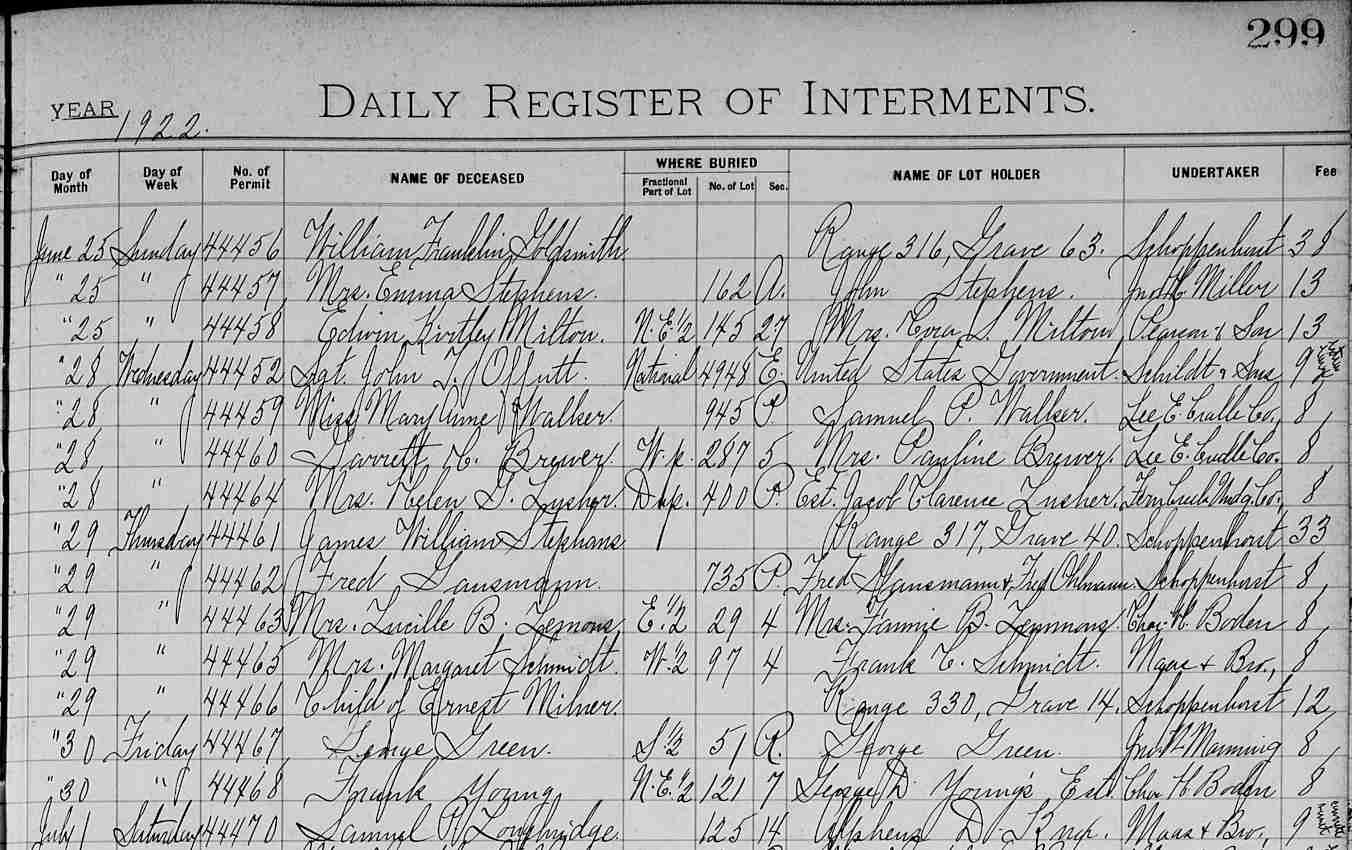 299
YEAR 1922. DAILY REGISTER OF INTERMENTS.
Day of Month Day of Week No. of Permit NAME OF DECEASED WHERE BURIED Fractional Part of Lot No. of Lot Sec. NAME OF LOT HOLDER UNDERTAKER Fee
June 25 Sunday 44456 William Franklin Goldsmith Range 316, Grave 63. Schoppenhorst 38
" 25 " 44457 Mrs. Emma Stephens. 162 A. John Stephens. Miller 13
" 25 " 44458 Edwin Kirtley Milton. N.E. 1/2 145 27 Mrs. Cora L. Milton Pearson & Son 13
" 28 Wednesday 44452 Sgt. John T. Offutt. National 4948 E. United States Government. Schildt & Sons 9
" 28 " 44459 Miss Mary Anne Walker. 945 P. Samuel P. Walker. Lee E. Cralle Co., 8
" 28 " 44460 Garrett C. Brewer. W. p. 287 5 Mrs. Pauline Brewer. Lee E. Cralle Co. 8
" 28 " 44464 Mrs. Helen G. Lusher. Dup. 400 P. Est. Jacob Clarence Lusher. Fern Creek Undg. Co., 8
" 29 Thursday 44461 James William Stephans Range 317, Grave 40. Schoppenhorst 33
" 29 " 44462 Fred Gausmann. 735 P. Fred Gausmann & Fred Ohlmann Schoppenhorst 8
" 29 " 44463 Mrs. Lucille B. Lemons E. 1/2 29 4 Mrs. Fannie B. Lemmons. Chas. H. Boden 8
" 29 " 44465 Mrs. Margaret Schmidt. W. 1/2 97 4 Frank C. Schmidt. Maas & Bro., 8
" 29 " 44466 Child of Ernest Milner. Range 330, Grave 14. Schoppenhorst 12
" 30 Friday 44467 George Green. S 1/2 51 R. George Green. Manning 8
" 30 " 44468 Frank Young N.E. 1/2 121 7 George D. Young's Est. Chas H Boden 8
July 1 Saturday 44470 Samuel R. Longbridge. 125 14 Alpheus D. Maas & Bro., 9